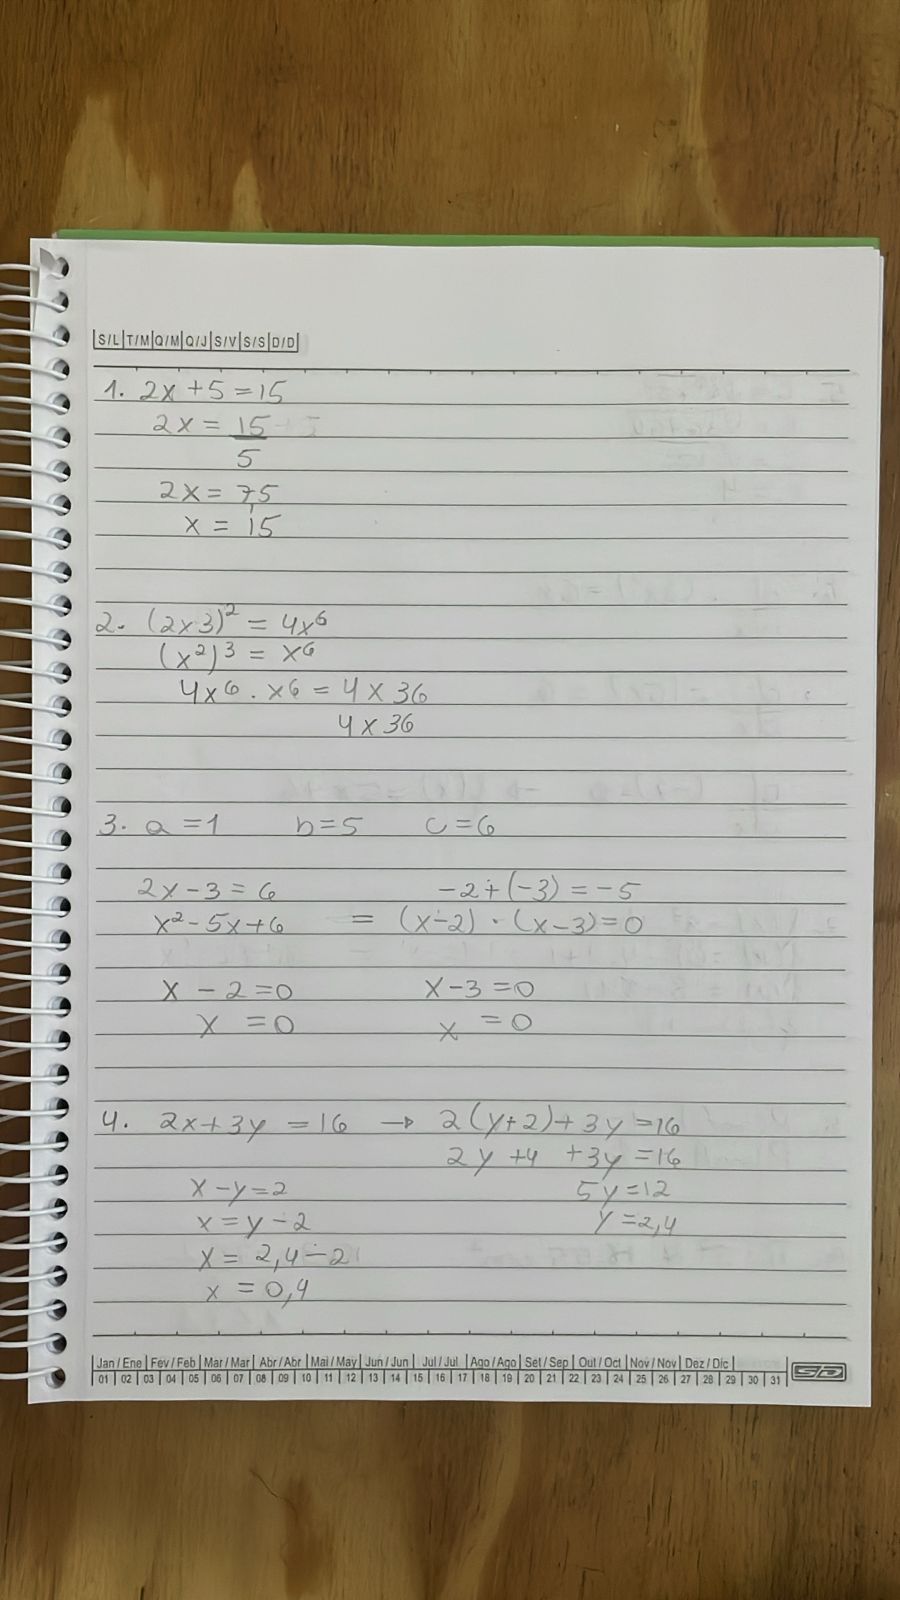 S/L T/M Q/M Q/J S/V S/S D/D
1. 2x + 5 = 15
2x = 15
5
2x = 75
x = 15
2. (2x3)² = 4x⁶
(x²)³ = x⁶
4x6 . x6 = 4 x 36
4 x 36
3. a = 1 b = 5 c = 6
2x - 3 = 6 -2 + (-3) = -5
x² - 5x + 6 = (x - 2) · (x - 3) = 0
x - 2 = 0 x - 3 = 0
x = 0 x = 0
4. 2x + 3y = 16 → 2(y + 2) + 3y = 16
2y + 4 + 3y = 16
x - y = 2 5y = 12
x = y - 2 y = 2,4
x = 2,4 - 2
x = 0,4
Jan/Ene Fev/Feb Mar/Mar Abr/Abr Mai/May Jun/Jun Jul/Jul Ago/Ago Set/Sep Out/Oct Nov/Nov Dez/Dic
01 02 03 04 05 06 07 08 09 10 11 12 13 14 15 16 17 18 19 20 21 22 23 24 25 26 27 28 29 30 31
SD